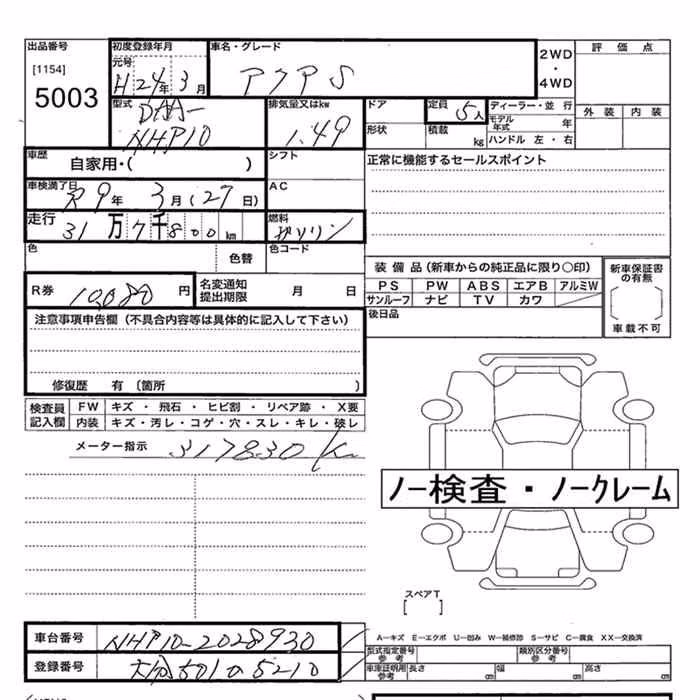 出品番号
[1154]
5003
初度登録年月
元号
H 24年 3月
車名・グレード
アクア S
2WD
・
4WD
評価点
外装 内装
型式
DAA-
NHP10
排気量又はkw
1.49
ドア
定員 5人
ディーラー・並 行
モデル年式 年
形状
積載 kg
ハンドル 左・右
車歴
自家用・( )
シフト
正常に機能するセールスポイント
車検満了日
R9年 3月(27日)
AC
走行
31万7千800km
燃料
ガソリン
色
色替
色コード
装備品(新車からの純正品に限り○印)
PS PW ABS エアB アルミW
サンルーフ ナビ TV カワ
新車保証書の有無
車載不可
R券 10080円
名変通知
提出期限
月 日
後日品
注意事項申告欄(不具合内容等は具体的に記入して下さい)
修復歴 有 〔箇所 〕
検査員
記入欄
FW キズ・飛石・ヒビ割・リペア跡・X要
内装 キズ・汚レ・コゲ・穴・スレ・キレ・破レ
メーター指示 317830K
ノー検査・ノークレーム
スペアT
[ ]
車台番号 NHP10-2028930
登録番号 大分501の5210
A−キズ E−エクボ U−凹み W−補修跡 S−サビ C−腐食 XX−交換済
型式指定番号
参考
類別区分番号
参考
車庫証明用
参考
長さ cm 幅 cm 高さ cm